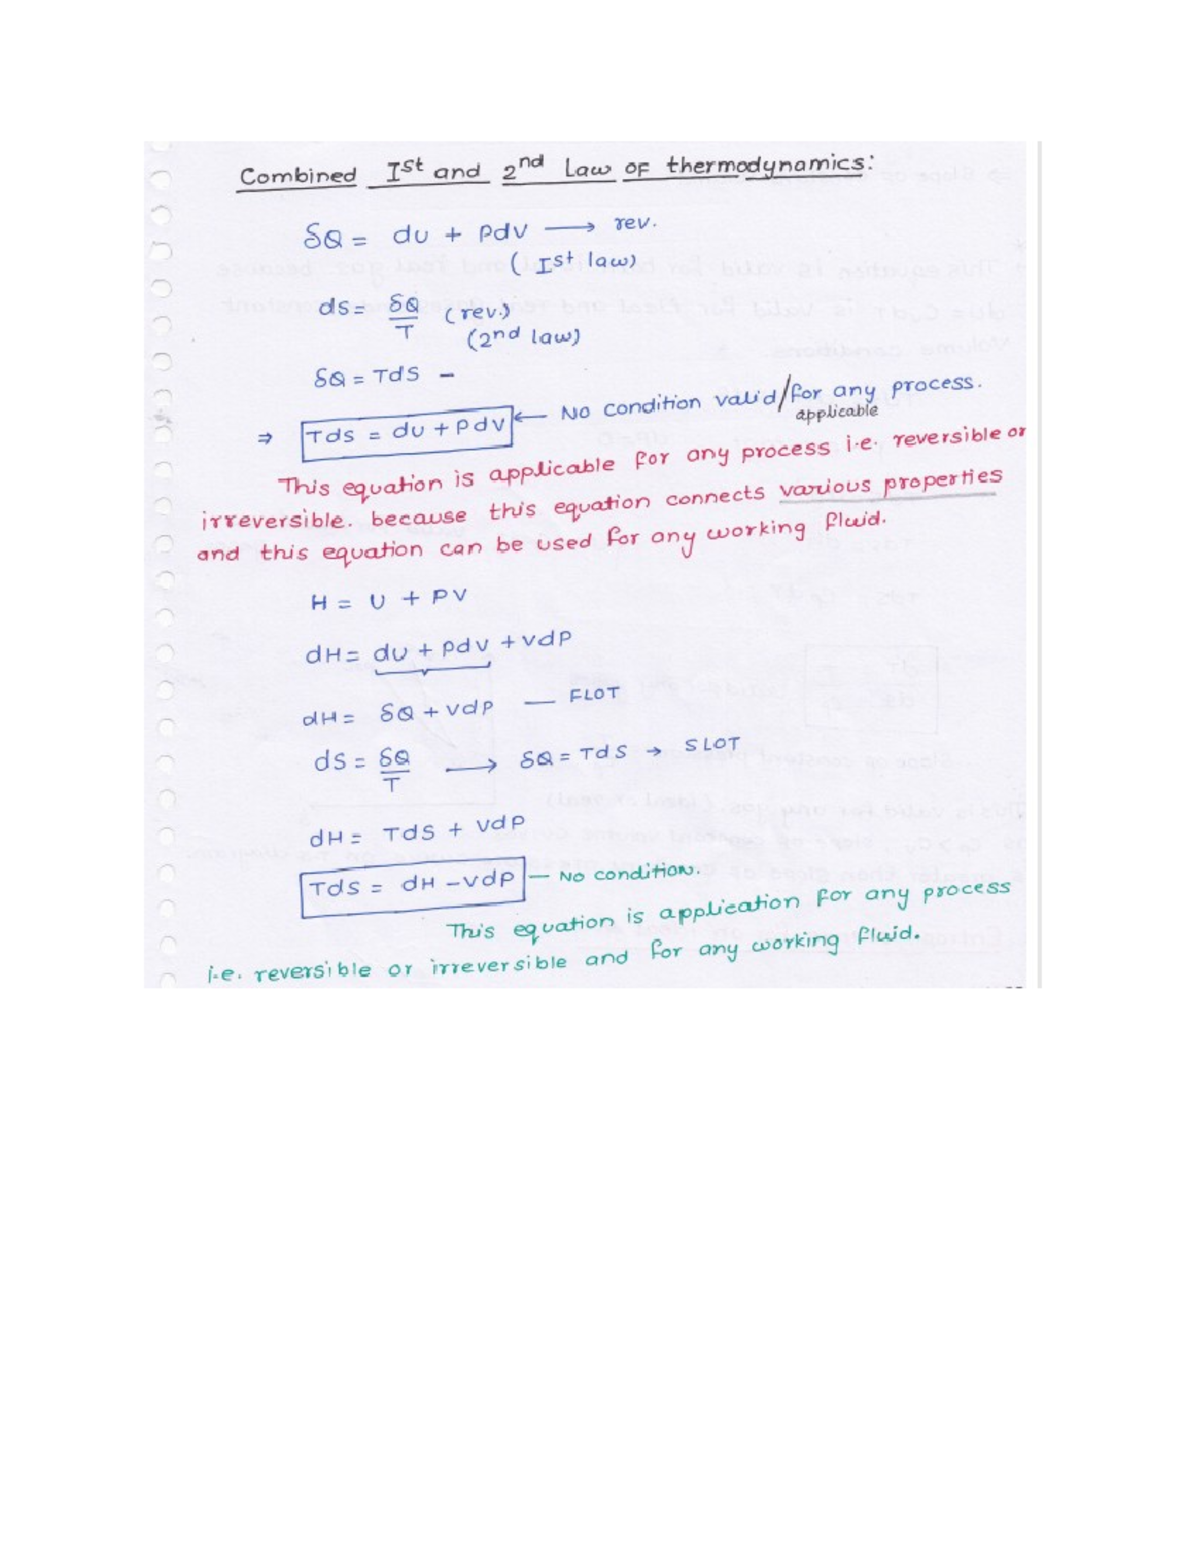 Combined Ist and 2nd Law OF thermodynamics:
δQ = du + pdv ⟶ rev.
(Ist law)
ds = δQ/T (rev.)
(2nd law)
δQ = Tds –
⇒ Tds = du + pdv ← No condition valid/for any process.
applicable
This equation is applicable for any process i.e. reversible or
irreversible. because this equation connects various properties
and this equation can be used for any working fluid.
H = U + PV
dH = du + pdv + vdp
dH = δQ + vdp — FLOT
dS = δQ/T ⟶ δQ = Tds → SLOT
dH = Tds + vdp
Tds = dH – vdp — No condition.
This equation is application for any process
i.e. reversible or irreversible and for any working fluid.